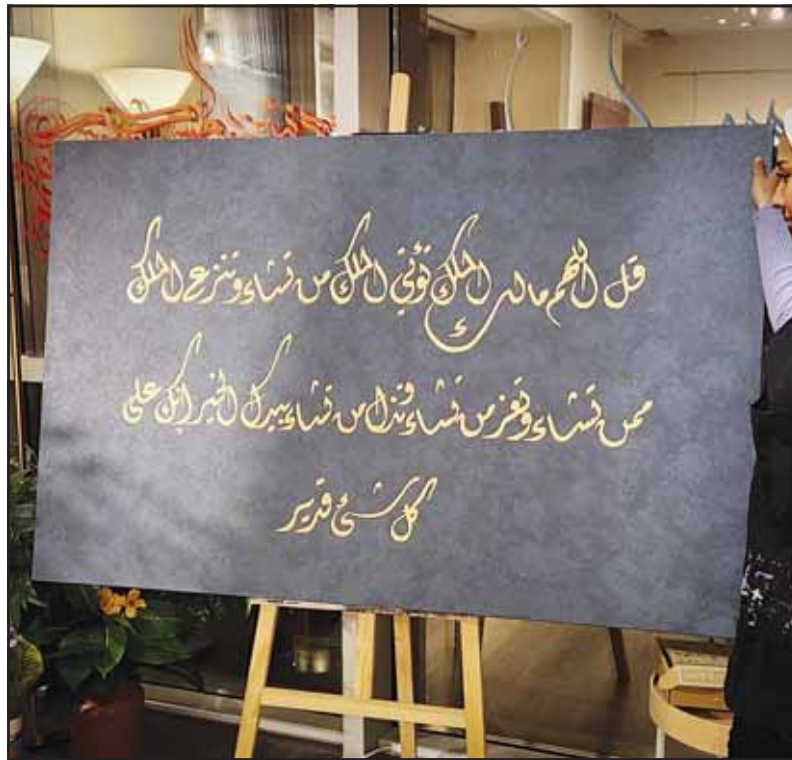 قل اللهم مالك الملك تؤتي الملك من تشاء وتنزع الملك
ممن تشاء وتعز من تشاء وتذل من تشاء بيدك الخير انك على
كل شئ قدير